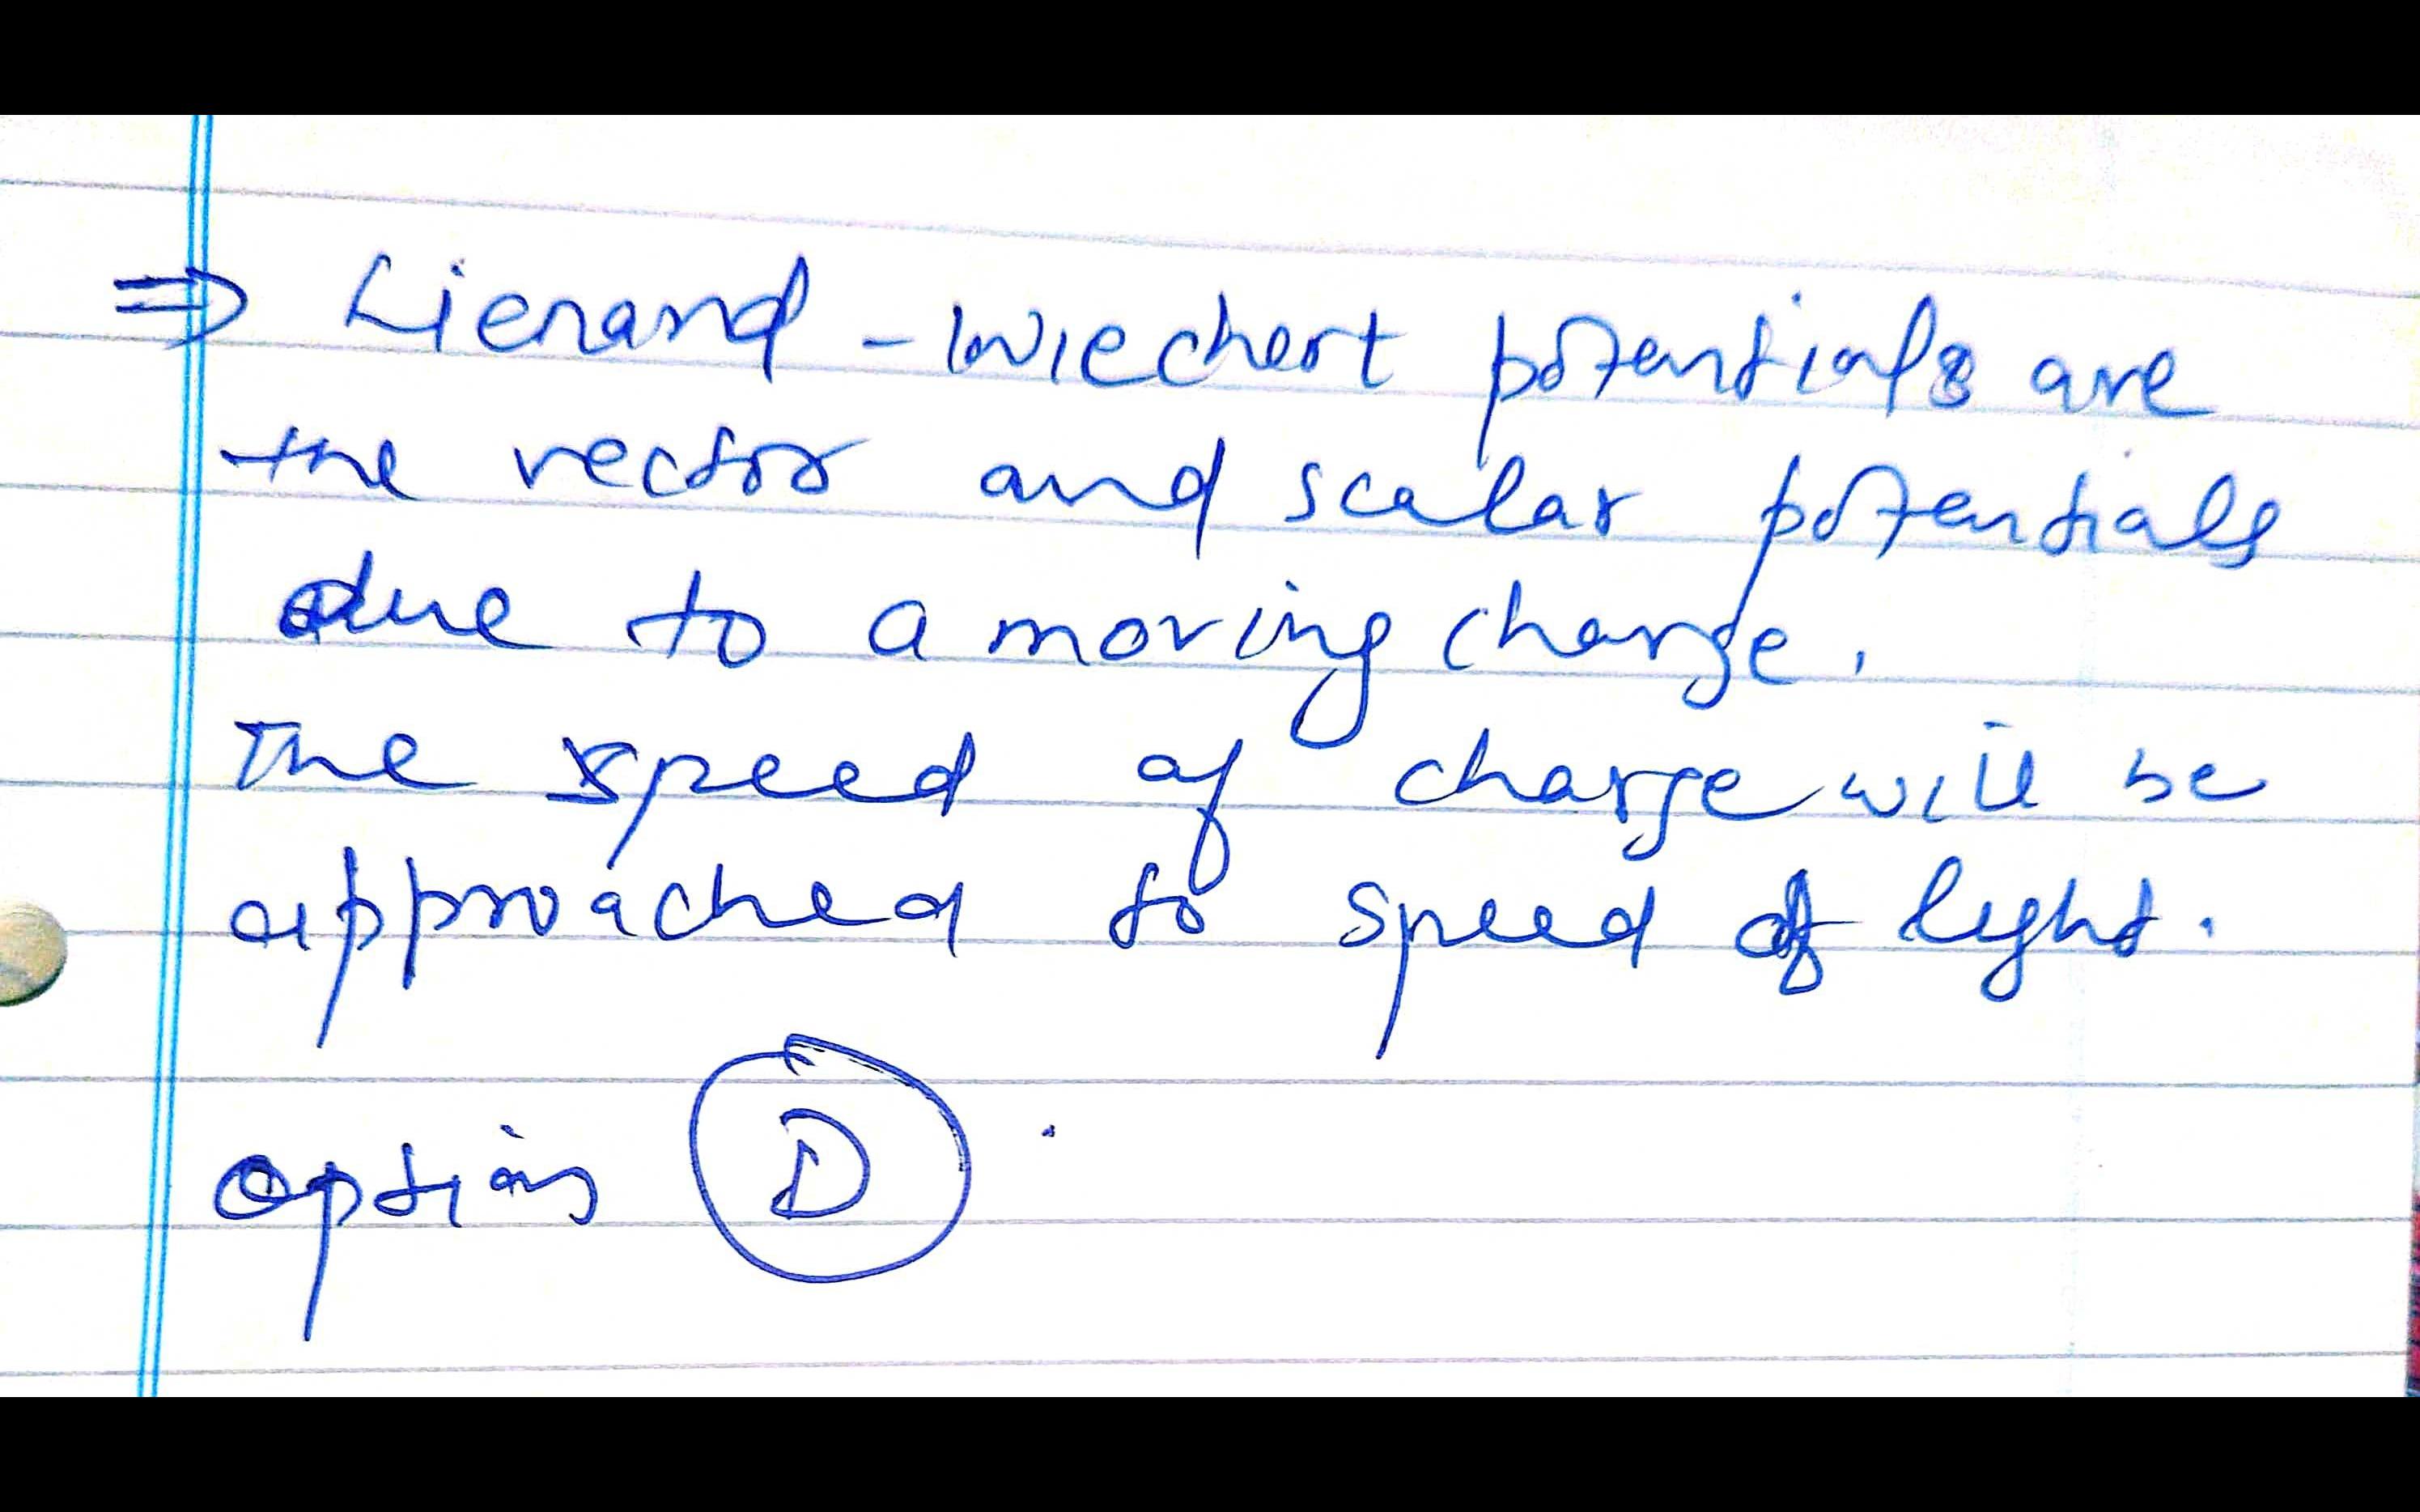 ⇒ Lienand - Wiechert potentials are
the vector and scalar potentials
due to a moving charge.
The speed of charge will be
approached to speed of light.
option D.